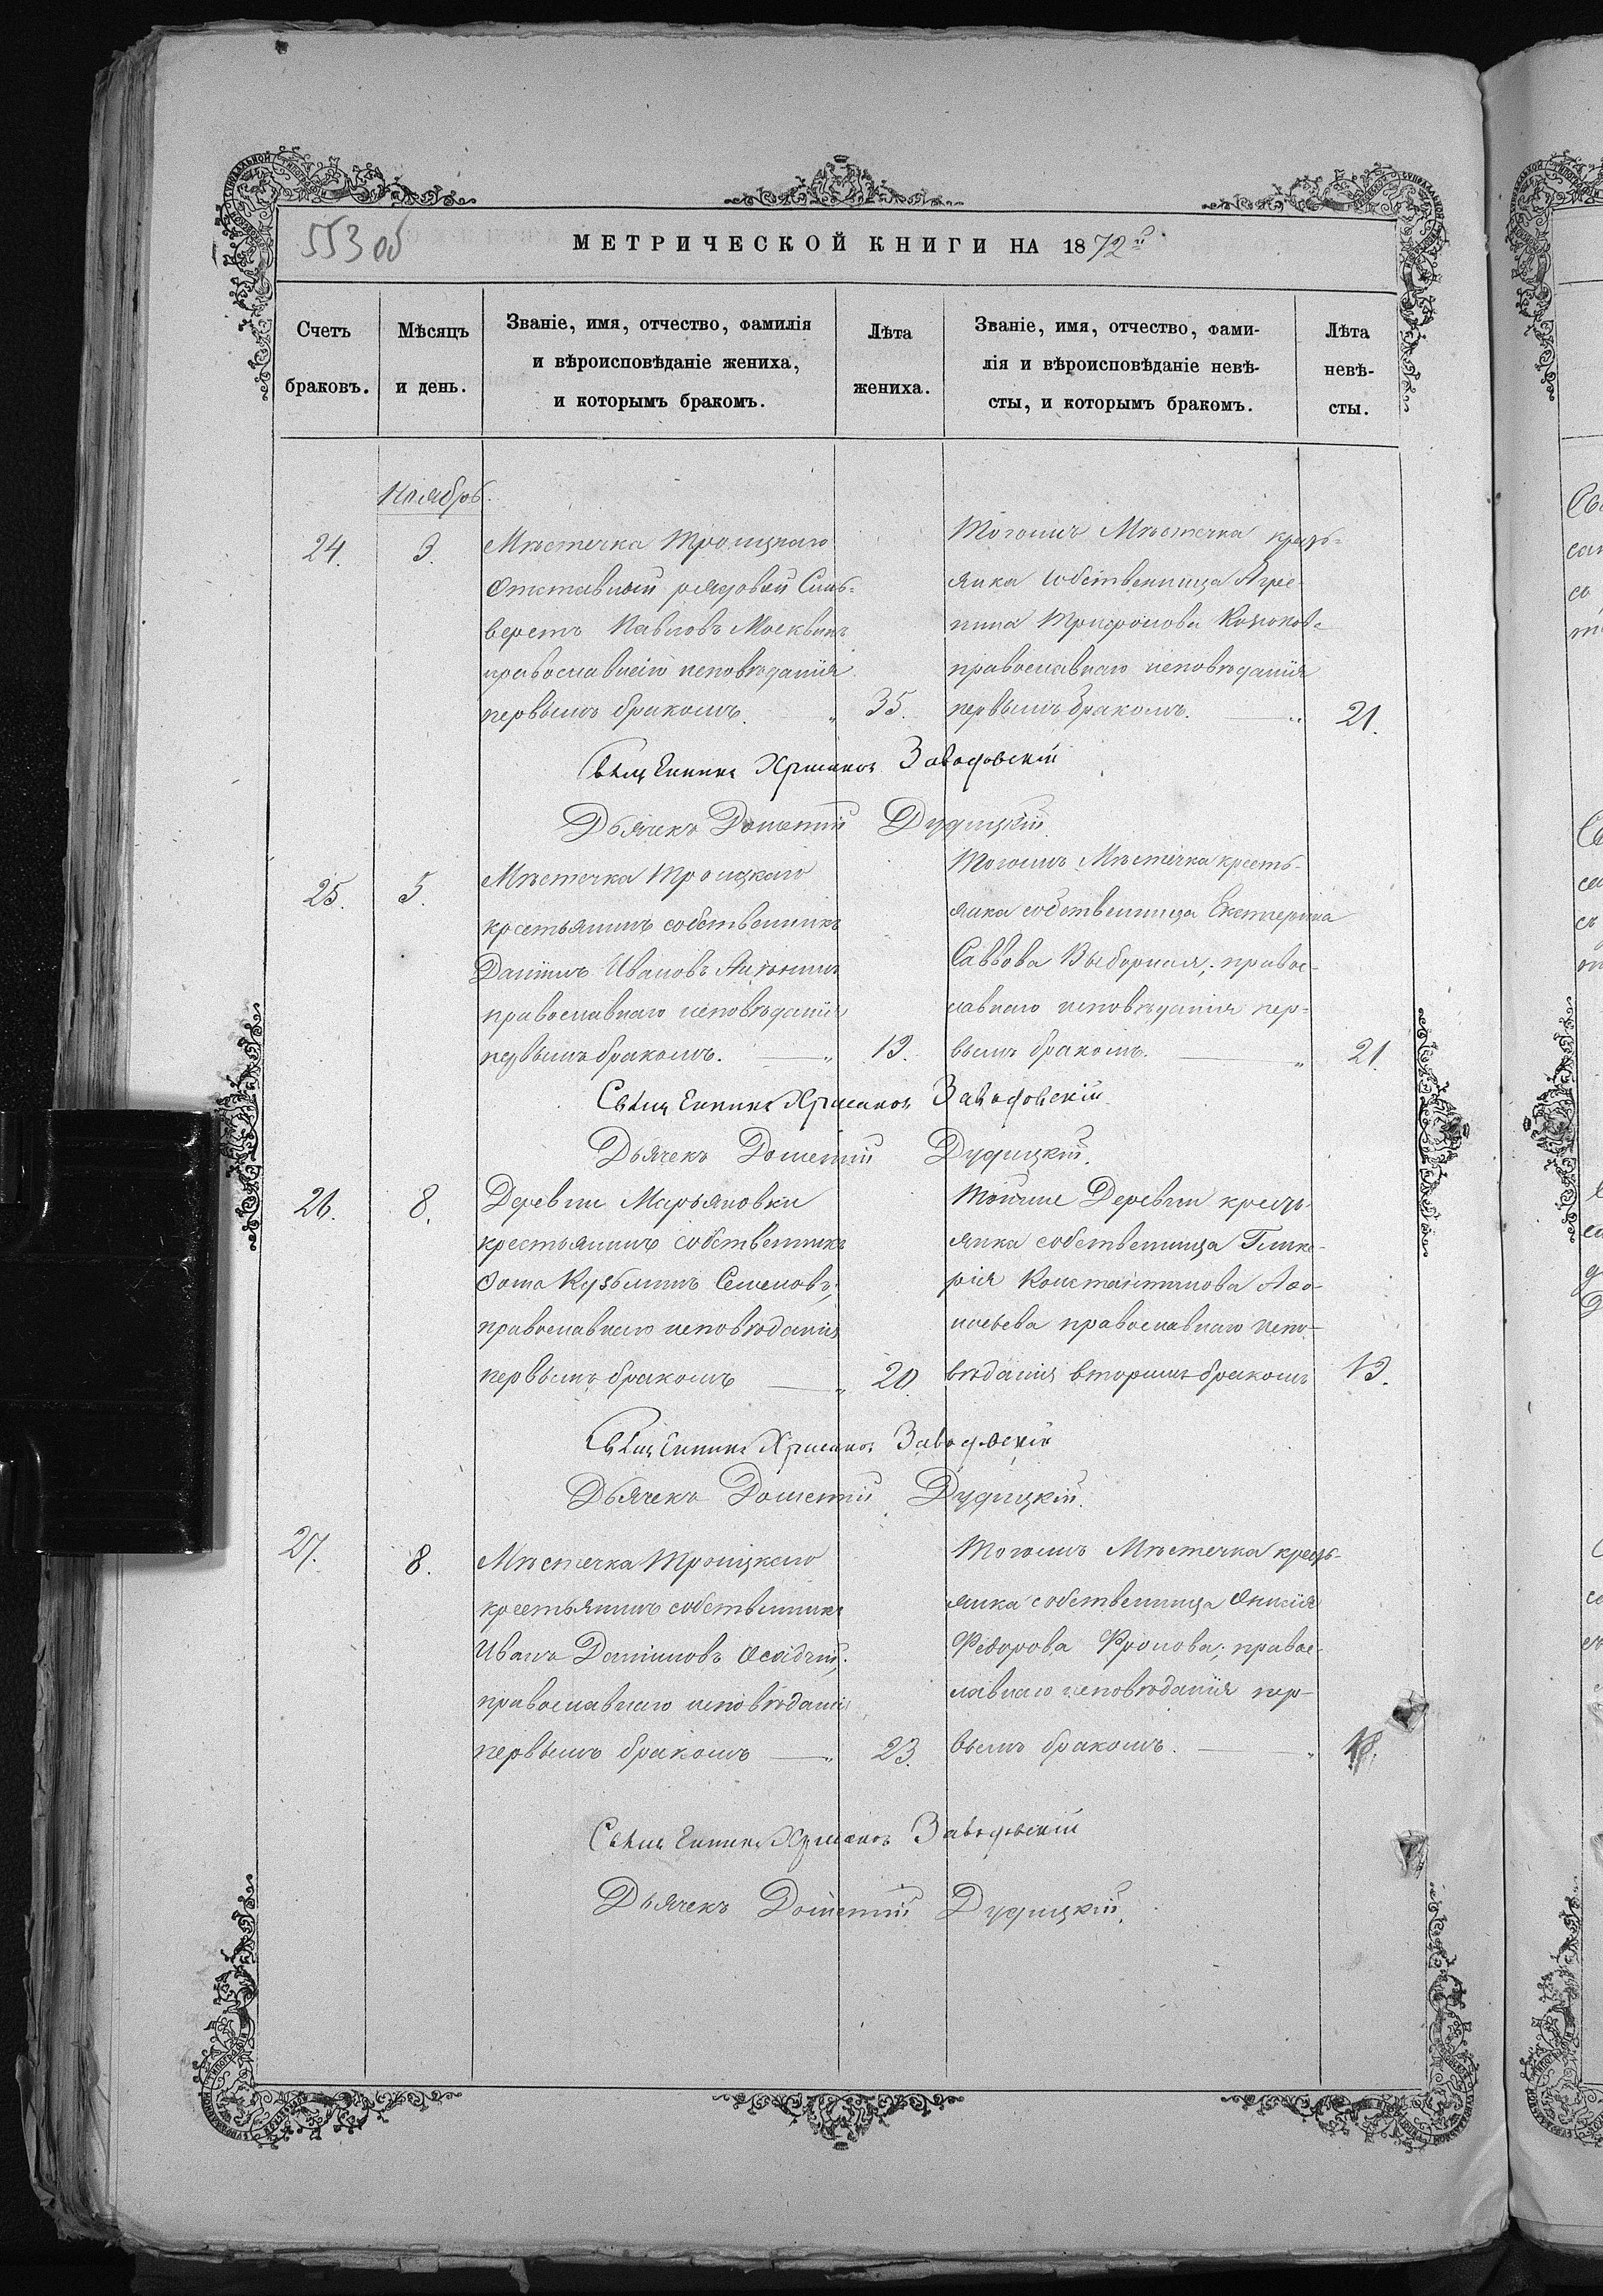 553 об
МЕТРИЧЕСКОЙ КНИГИ НА 1872й
Счетъ браковъ.
Мѣсяцъ и день.
Званіе, имя, отчество, фамилія
и вѣроисповѣданіе жениха,
и которымъ бракомъ.
Лѣта жениха.
Званіе, имя, отчество, фами-
лія и вѣроисповѣданіе невѣ-
сты, и которымъ бракомъ.
Лѣта невѣ-
сты.
Ноябрь.
24.
3.
Мѣстечка Троицкаго
отставный рядовый Силь-
верстъ Павловъ Москвинъ
православнаго исповѣданія
первымъ бракомъ. „
35.
Тогожъ Мѣстечка кресть-
янка собственница Агре-
пина Трифонова
православнаго исповѣданія
первымъ бракомъ. „
21.
Священникъ Хрисанѳъ Завадовскій
Дьячекъ Дометій Дудицкій.
25.
5.
Мѣстечка Троицкаго
крестьянинъ собственникъ
Даніилъ Ивановъ
православнаго исповѣданія
первымъ бракомъ. — „
19.
Тогожъ Мѣстечка кресть-
янка собственница Екатерина
Саввова Выборная, правос-
лавнаго исповѣданія пер-
вымъ бракомъ. — „
21.
Священникъ Хрисанѳъ Завадовскій.
Дьячекъ Дометій Дудицкій.
26.
8.
Деревни Марьяновки
крестьянинъ собственникъ
Ѳома Кузьминъ Семеновъ,
православнаго исповѣданія
первымъ бракомъ — „
20.
Тойже Деревни кресть-
янка собственница Глике-
рія Константинова Аѳо-
насьева православнаго испо-
вѣданія вторымъ бракомъ
19.
Священникъ Хрисанѳъ Завадовскій
Дьячекъ Дометій Дудицкій.
27.
8.
Мѣстечка Троицкаго
крестьянинъ собственникъ
Иванъ Даніиловъ Осадчій,
православнаго исповѣданія
первымъ бракомъ — „
23.
Тогожъ Мѣстечка кресть-
янка собственница
Федорова Фролова, правос-
лавнаго исповѣданія пер-
вымъ бракомъ. — „
18.
Священникъ Хрисанѳъ Завадовскій
Дьячекъ Дометій Дудицкій.